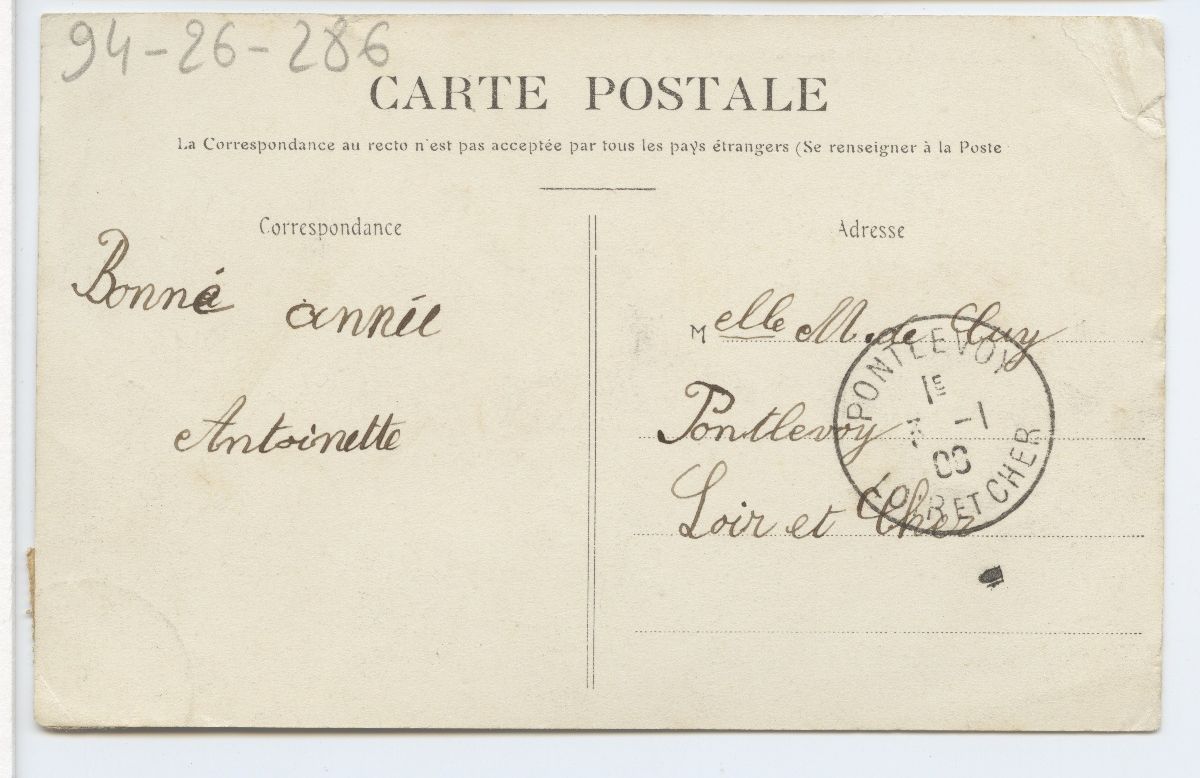 94-26-286
CARTE POSTALE
La Correspondance au recto n'est pas acceptée par tous les pays étrangers (Se renseigner à la Poste
Correspondance
Bonne année
Antoinette
Adresse
Melle M. de Cuy
Pontlevoy
Loir et Cher
PONTLEVOY
1E
-1
LOIR ET CHER